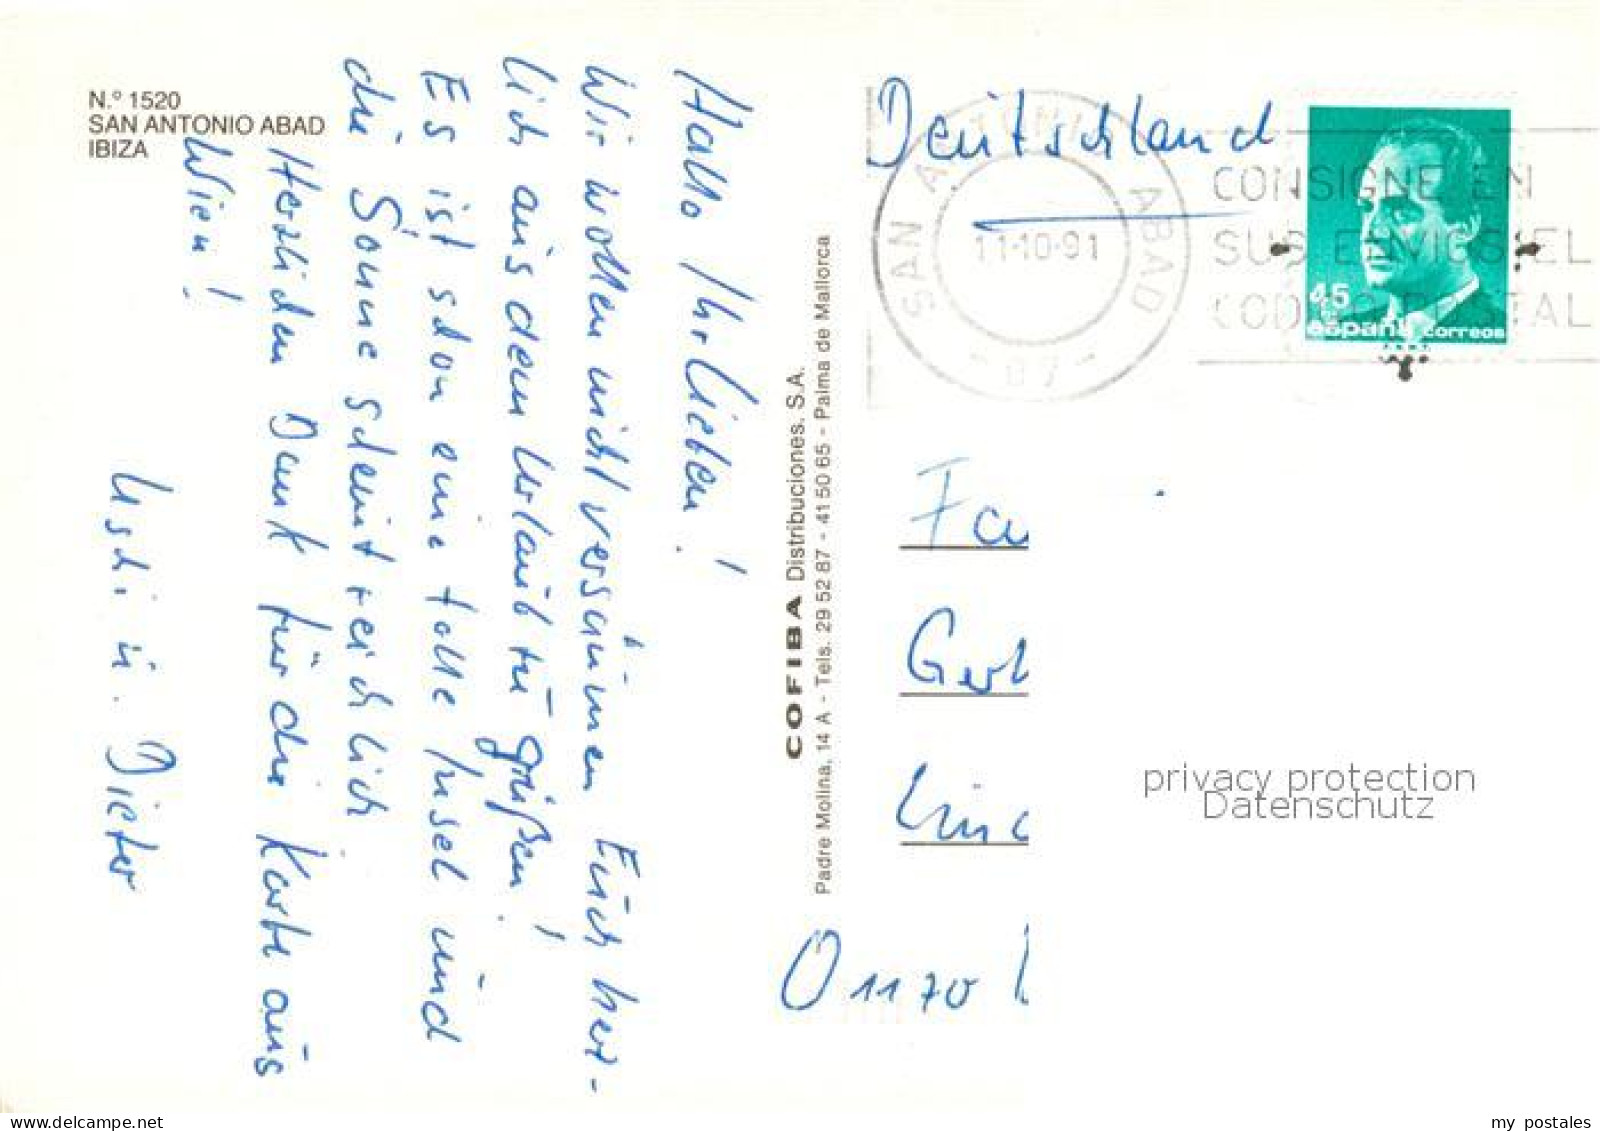 N.º 1520
SAN ANTONIO ABAD
IBIZA
Hallo Ihr Lieben!
Wir wollen nicht versäumen Euch herz-
lich aus dem Urlaub zu grüßen!
Es ist schon eine tolle Insel und
die Sonne scheint reichlich
Herzlichen Dank für die Karte aus
Wien!
Uschi u. Dieter
COFIBA Distribuciones. S.A.
Padre Molina, 14 A - Tels. 29 52 87 - 41 50 65 - Palma de Mallorca
Deutschland
SAN ANTONIO ABAD
11-10-91
- 07 -
CONSIGNE EN
SUS ENVIOS EL
CODIGO POSTAL
45
españa correos
Fa
Ger
O 1170
privacy protection
Datenschutz
www.delcampe.net
my_postales